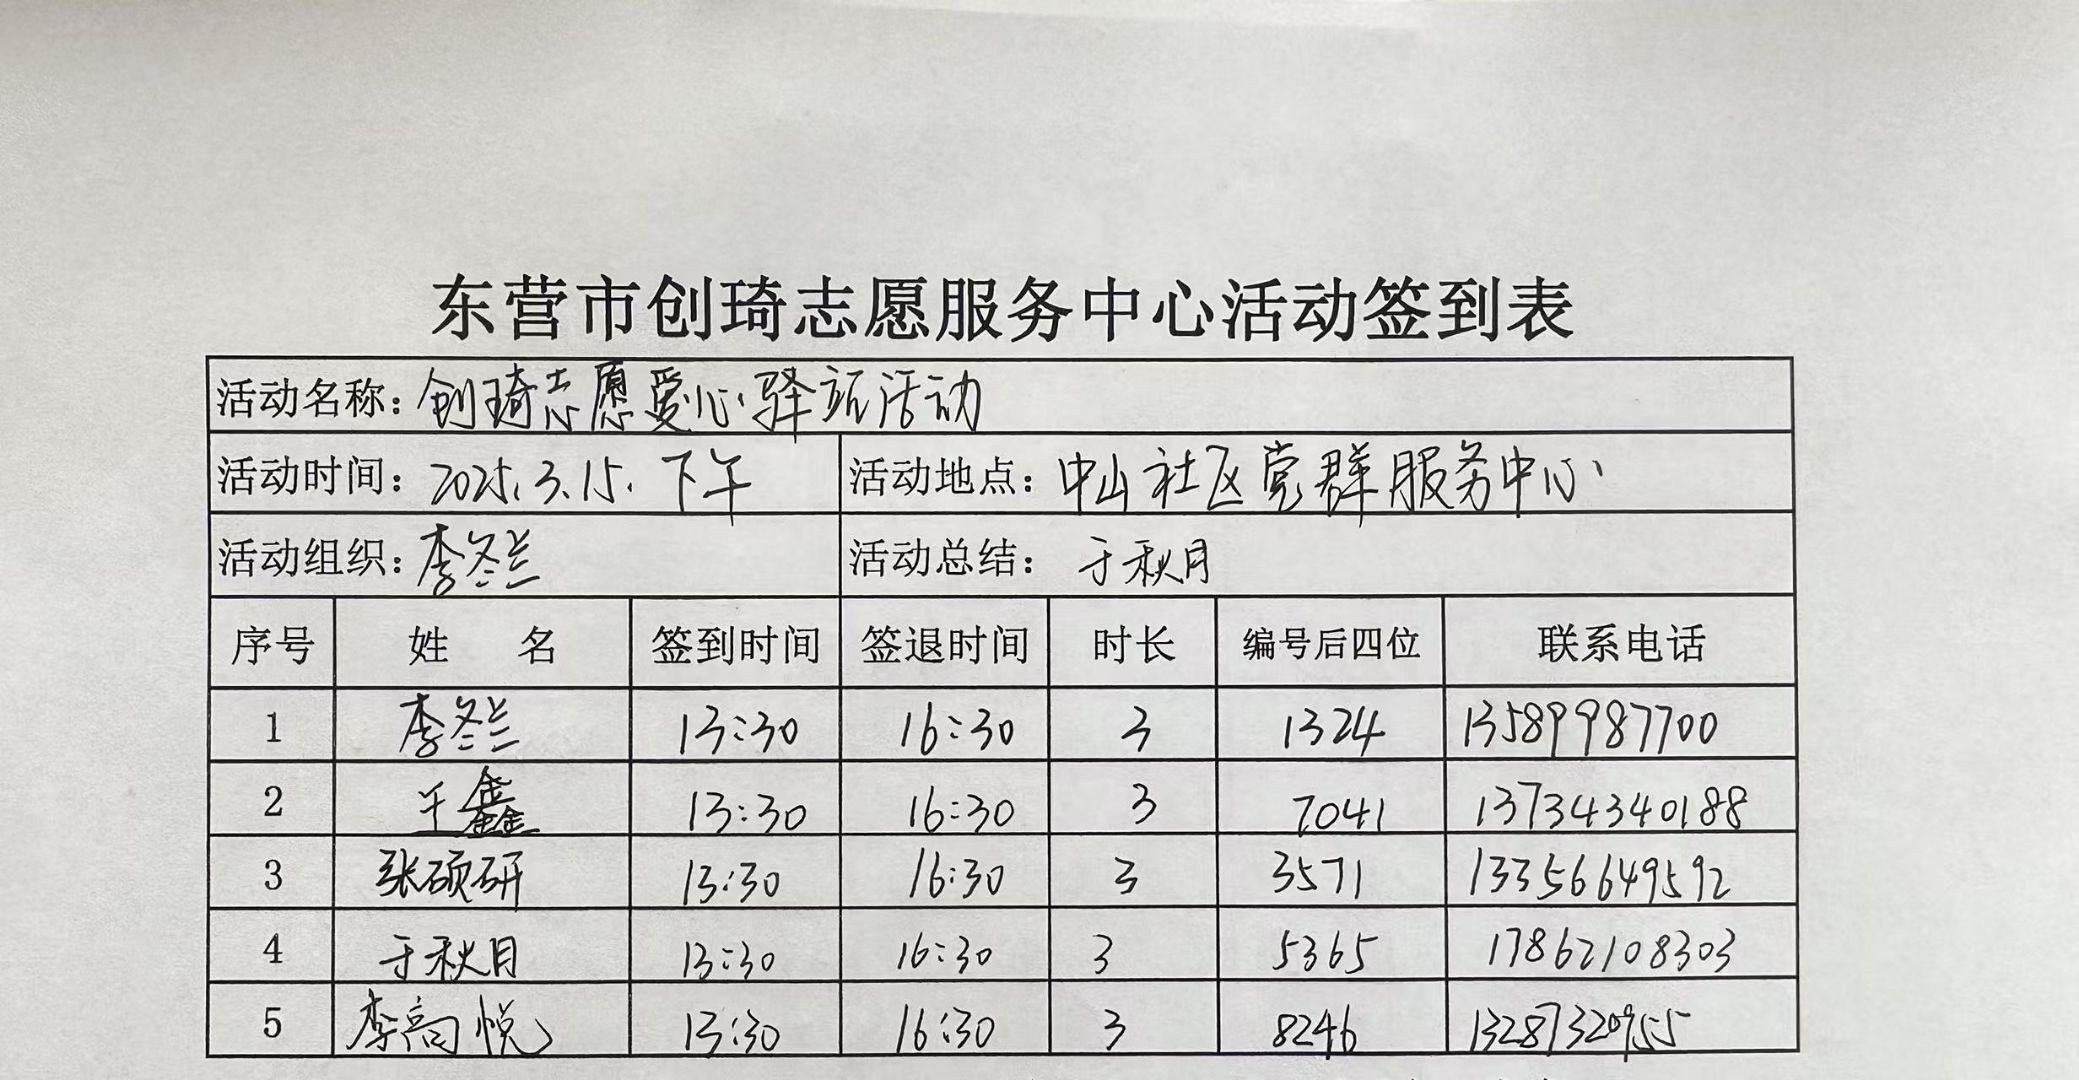 东营市创琦志愿服务中心活动签到表
活动名称：创琦志愿爱心驿站活动
活动时间：2025.3.15.下午 活动地点：中山社区党群服务中心
活动组织：李冬兰 活动总结：于秋月
序号 姓名 签到时间 签退时间 时长 编号后四位 联系电话
1 李冬兰 13:30 16:30 3 1324 13589987700
2 于鑫 13:30 16:30 3 7041 13734340188
3 张硕研 13:30 16:30 3 3571 13356649592
4 于秋月 13:30 16:30 3 5365 17862108303
5 李高悦 13:30 16:30 3 8246 13287320955